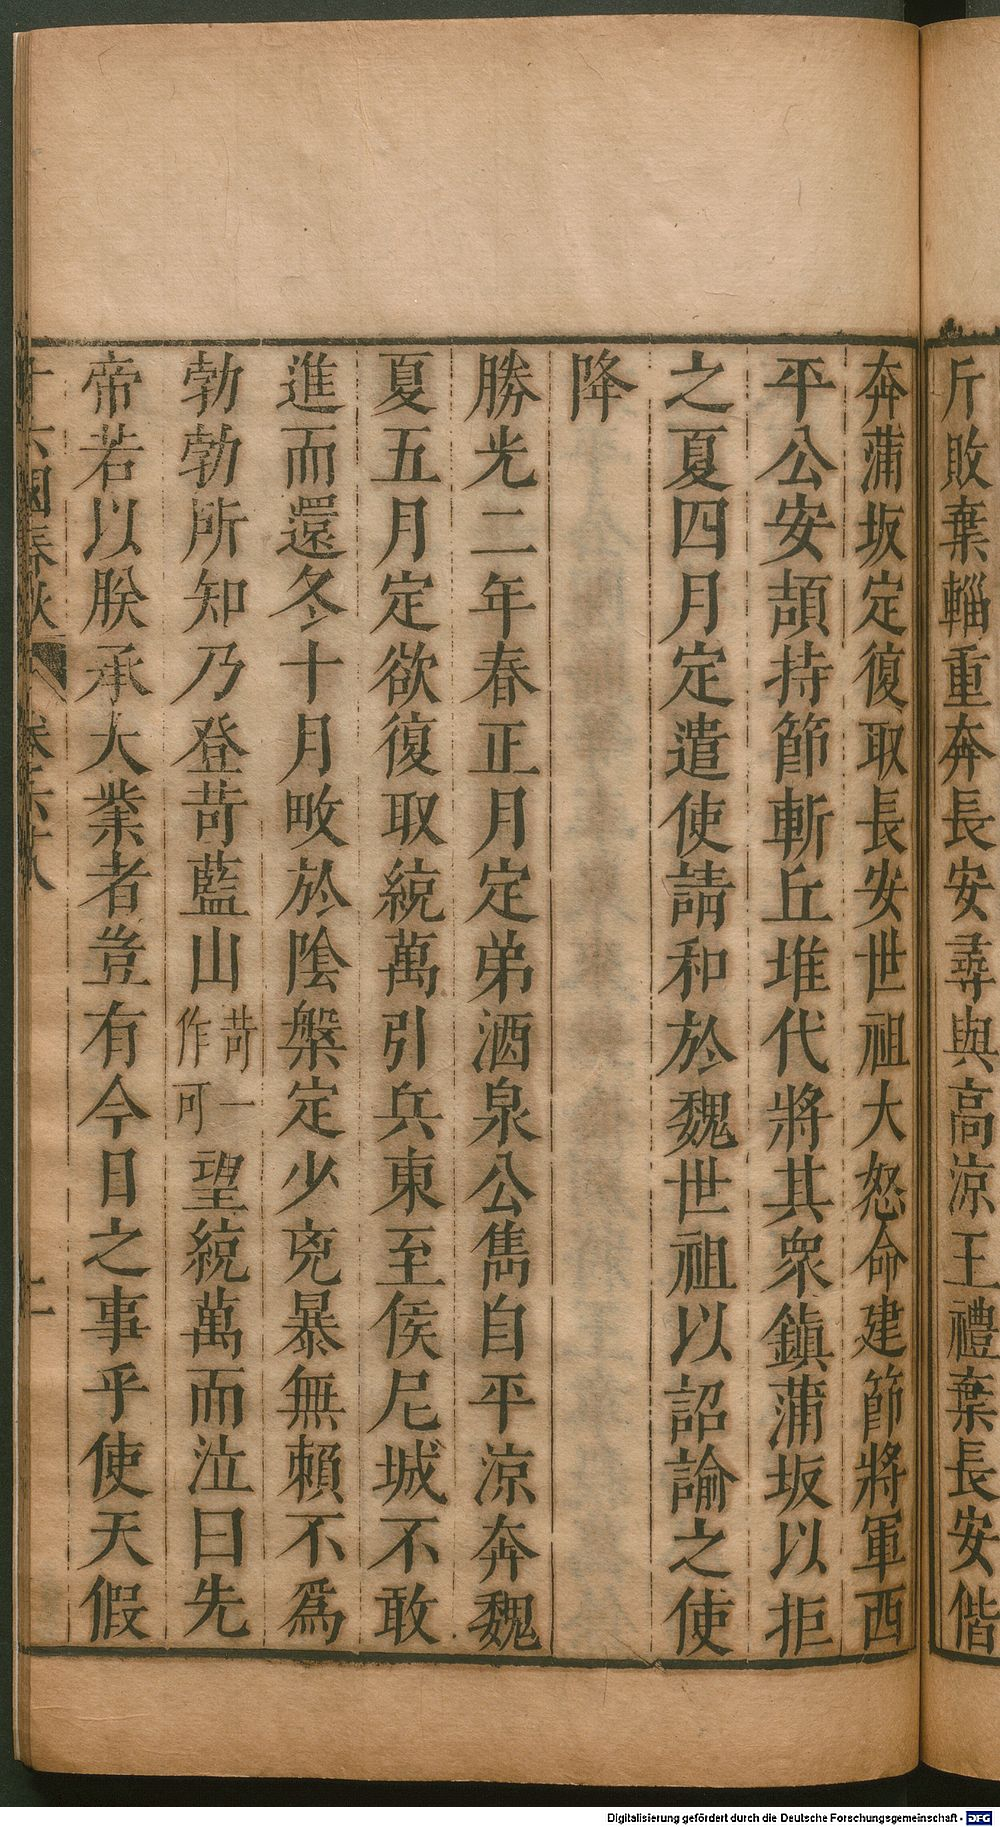 斤敗棄輜重奔長安尋與高涼王禮棄長安偕
奔蒲坂定復取長安世祖大怒命建節將軍西
平公安頡持節斬丘堆代將其衆鎮蒲坂以拒
之夏四月定遣使請和於魏世祖以詔諭之使
降
勝光二年春正月定弟酒泉公雋自平涼奔魏
夏五月定欲復取統萬引兵東至侯尼城不敢
進而還冬十月畋於陰槃定少兇暴無賴不爲
勃勃所知乃登苛藍山苛一作可望統萬而泣曰先
帝若以朕承大業者豈有今日之事乎使天假
十六國春秋 卷六十八 十一
Digitalisierung gefördert durch die Deutsche Forschungsgemeinschaft - DFG